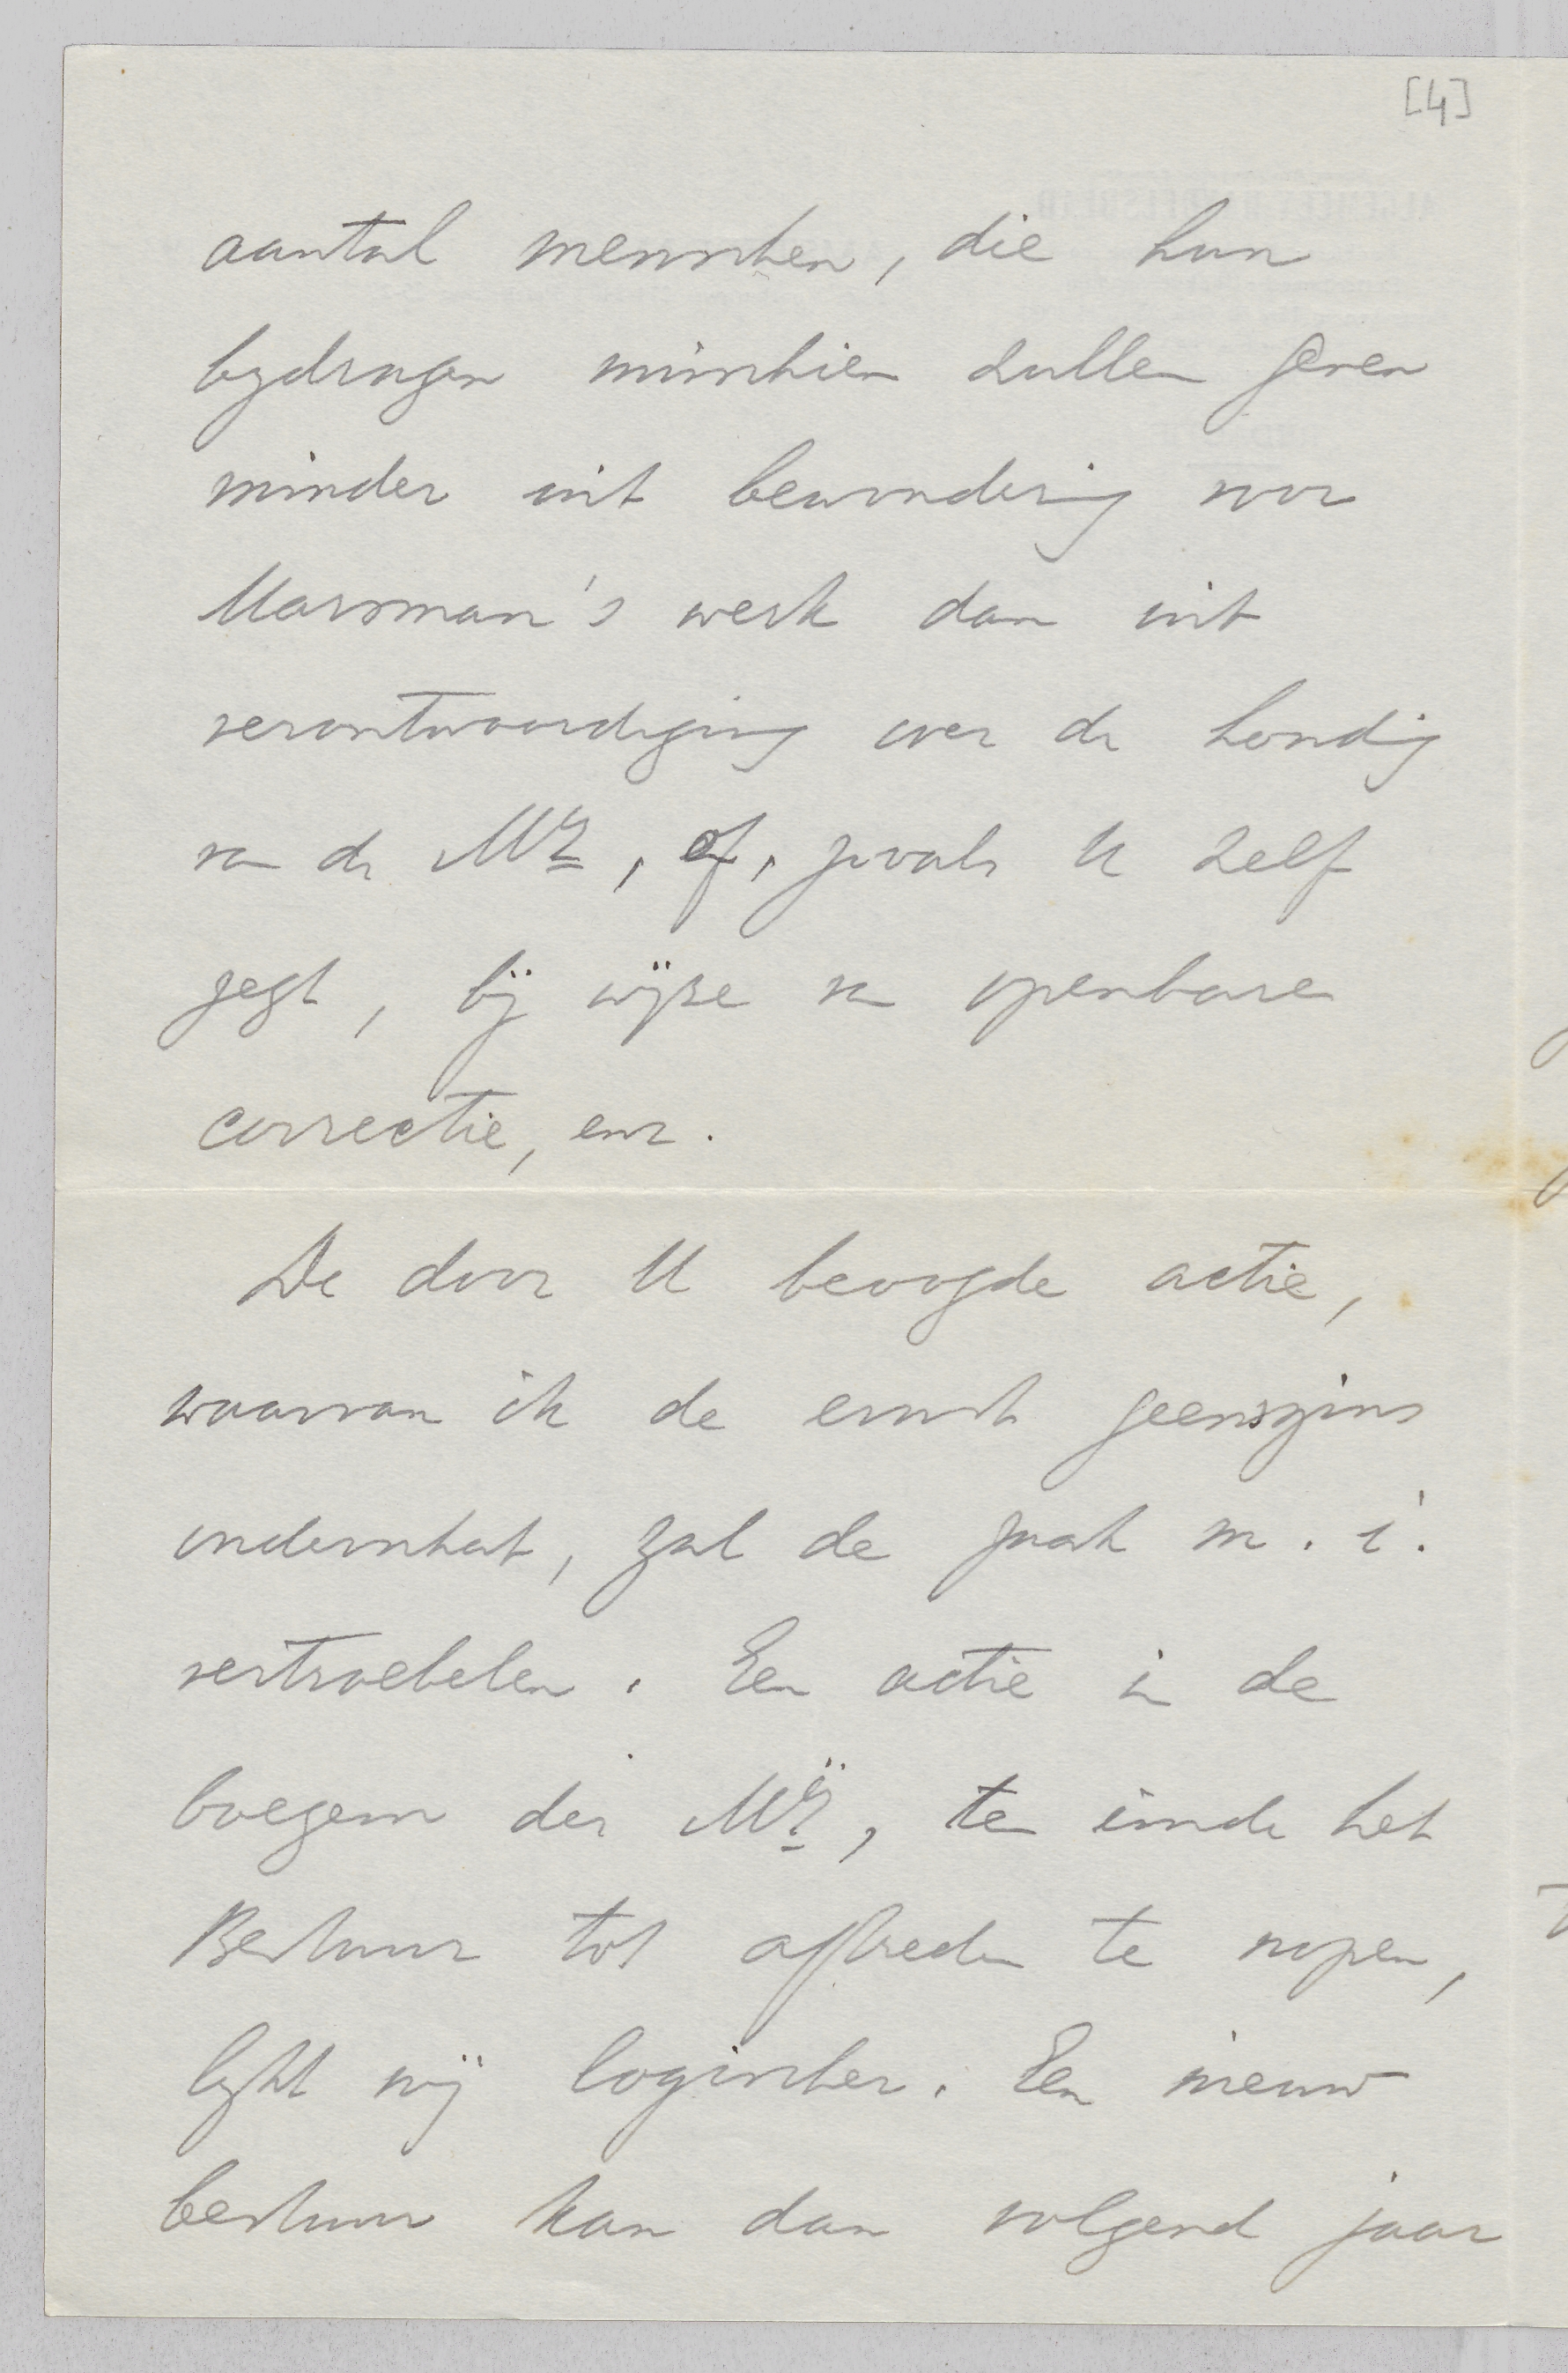 [4]
aantal menschen, die hun
bydragen misschien zullen geven
minder uit bewondering voor
Marsman's werk dan uit
verontwaardiging over de houding
van de Mij, of, zooals U zelf
zegt, bij wijze van openbare
correctie, enz.
De door U beoogde actie,
waarvan ik de ernst geenszins
onderschat, zal de zaak m.i.
vertroebelen. Een actie in de
boezem der Mij, ten einde het
Bestuur tot aftreden te nopen,
lykt mij logischer. Een nieuw
bestuur kan dan volgend jaar